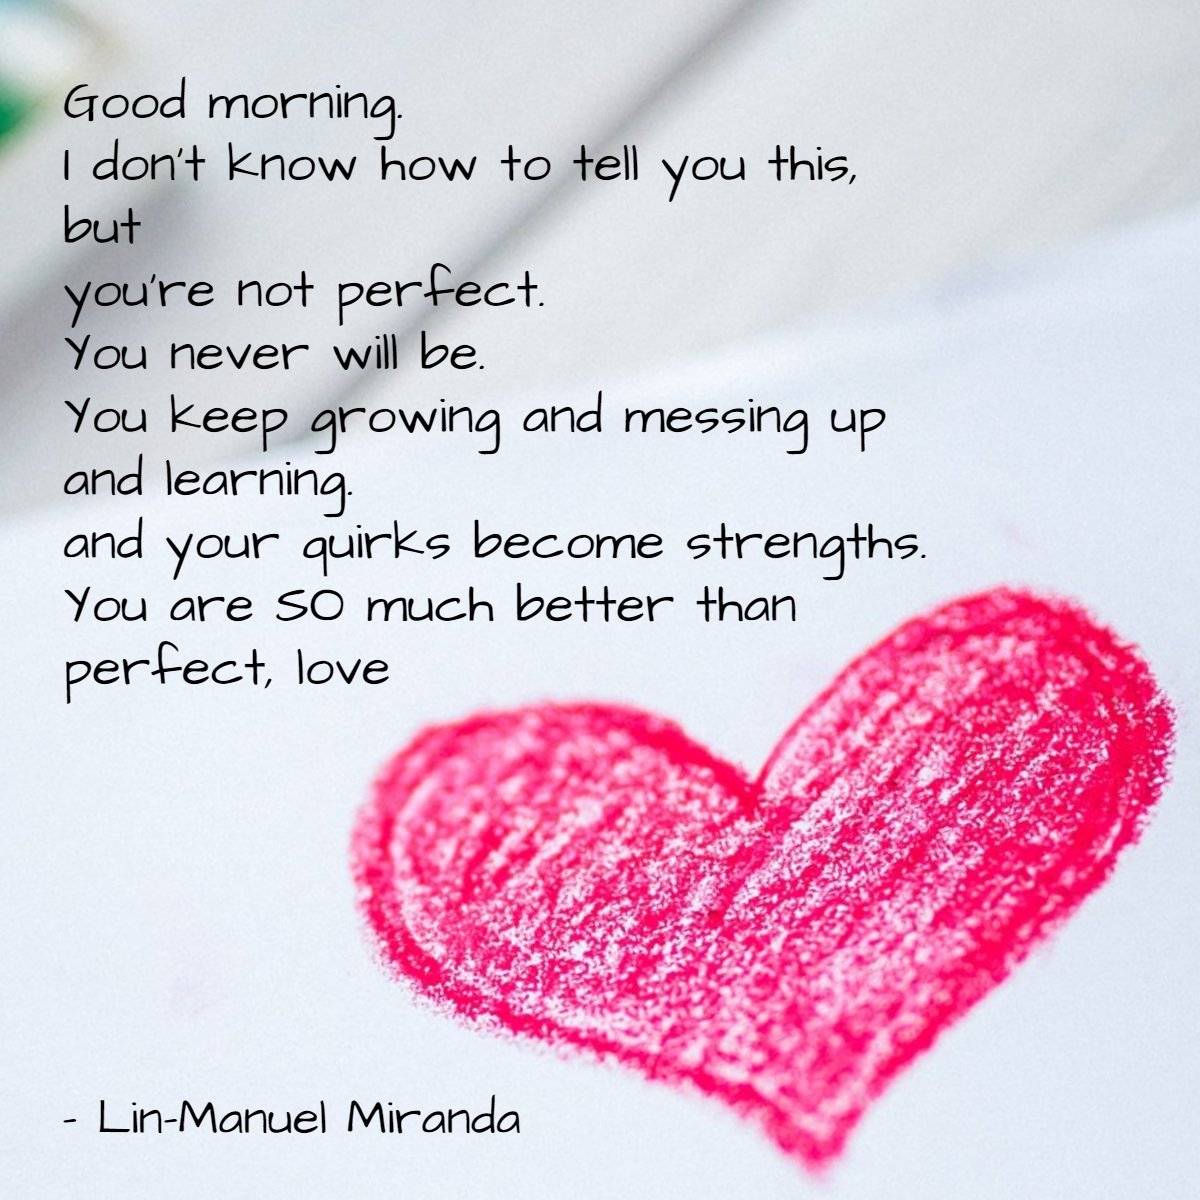 Good morning.
I don't know how to tell you this,
but
you're not perfect.
You never will be.
You keep growing and messing up
and learning.
and your quirks become strengths.
You are SO much better than
perfect, love
- Lin-Manuel Miranda